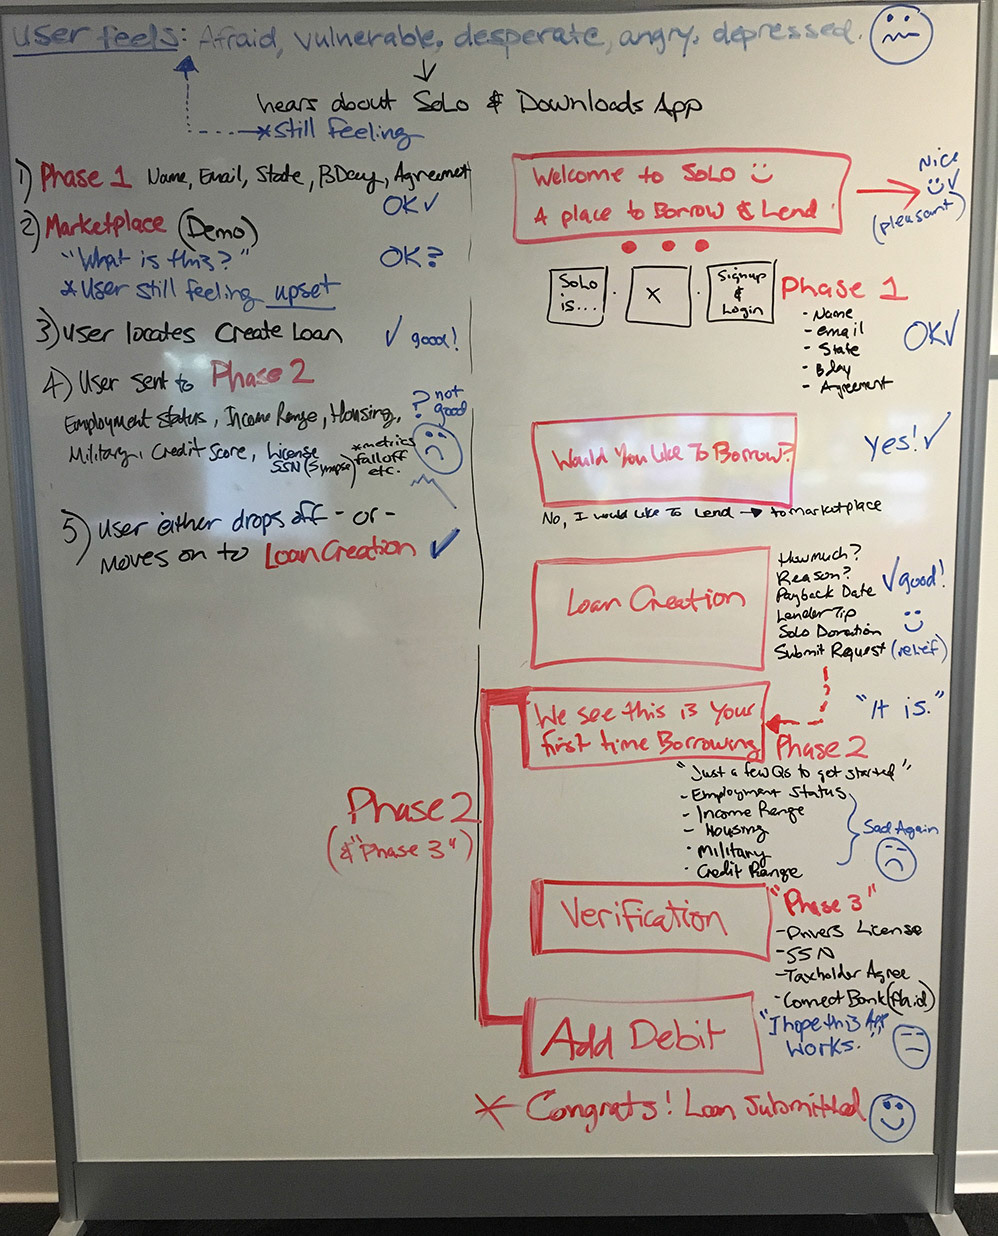 User feels: Afraid, vulnerable, desperate, angry, depressed.
hears about SoLo & Downloads App
*still feeling
1) Phase 1 Name, Email, State, BDay, Agreement
OK✓
2) Marketplace (Demo)
"What is this?"
OK?
*User still feeling upset
3) User locates Create Loan
✓ good!
4) User sent to Phase 2
? not good
Employment status, Income Range, Housing,
Military, Credit Score, License
SSN (Synapse)
*metrics
falloff
etc.
5) User either drops off - or -
moves on to Loan Creation ✓
Welcome to SoLo
A place to Borrow & Lend
Nice
✓
(pleasant)
SoLo
is...
X
Signup
&
Login
Phase 1
- Name
- email
- State
- Bday
- Agreement
OK✓
Would You Like To Borrow?
Yes!✓
No, I would like To Lend → to marketplace
Loan Creation
How much?
Reason?
Payback Date
Lender Tip
Solo Donation
Submit Request
✓good!
(relief)
We see this is your
first time Borrowing
"It is."
Phase 2
"Just a few Qs to get started"
- Employment Status
- Income Range
- Housing
- Military
- Credit Range
Sad Again
Phase 2
(& "Phase 3")
Verification
"Phase 3"
- Drivers License
- SSN
- Taxholder Agree
- Connect Bank (Plaid)
Add Debit
"I hope this App
works."
* Congrats! Loan Submitted